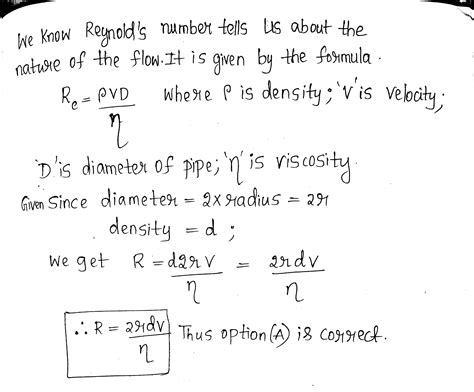 We know Reynold's number tells us about the
nature of the flow. It is given by the formula.
Re = ρVD/η where ρ is density; 'V' is velocity;
'D' is diameter of pipe; 'η' is viscosity.
Given Since diameter = 2 x radius = 2r
density = d ;
We get R = d2rV/η = 2rdv/η
∴ R = 2rdv/η Thus option (A) is correct.